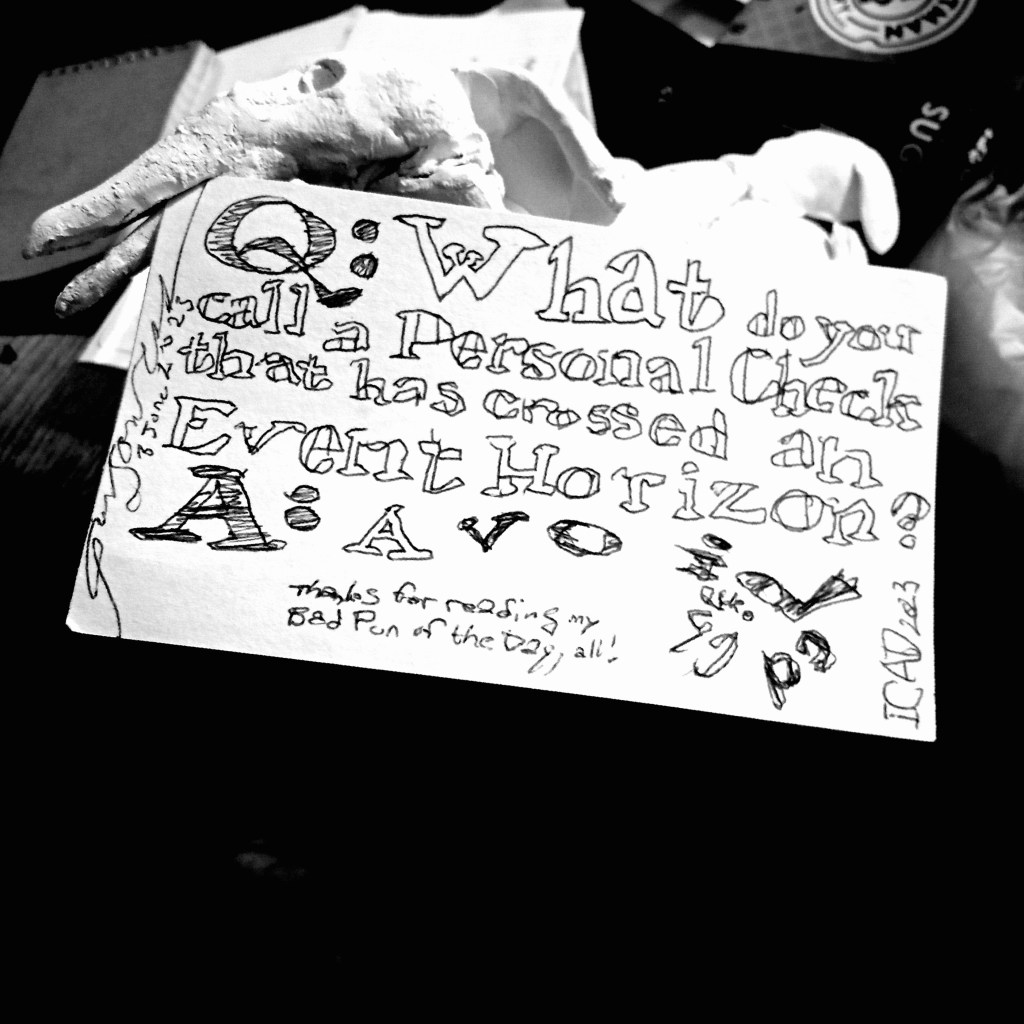 Q: What do you
call a Personal Check
that has crossed an
Event Horizon?
A: A VO
Thanks for reading my
Bad Pun of the Day, all!
3 June 2023
ICAD 2023